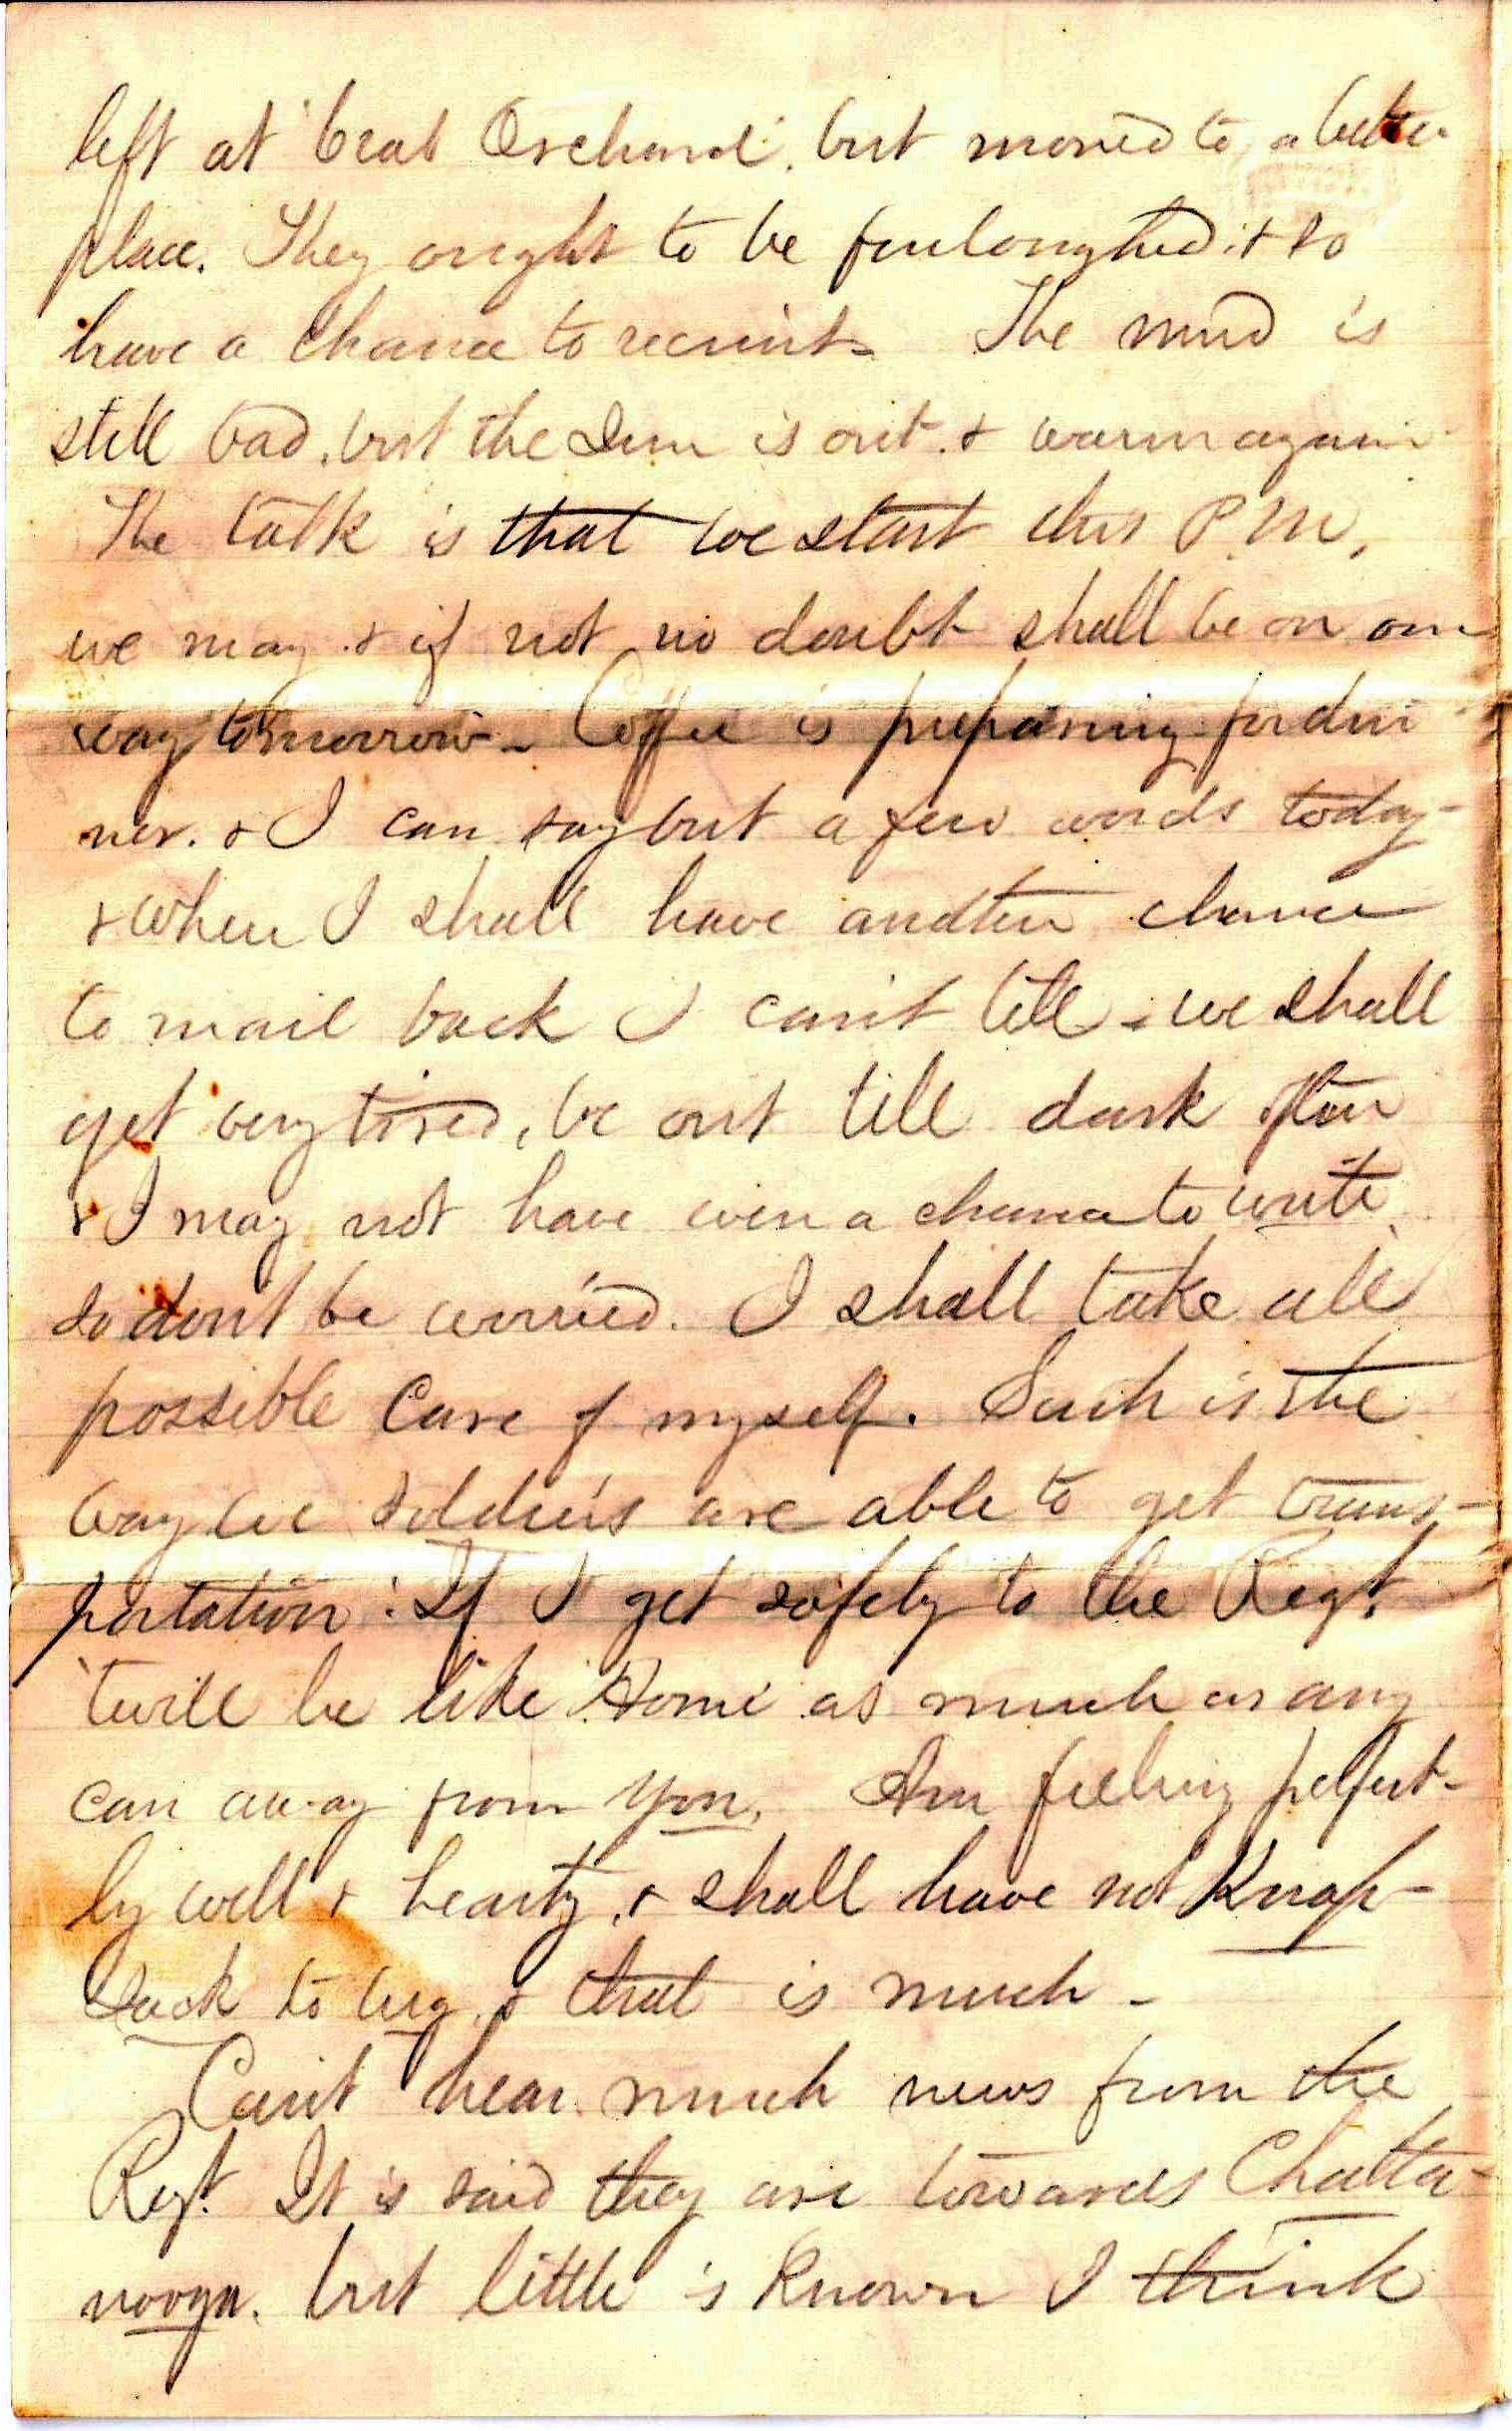 left at Crab Orchard. but moved to a better
place. They ought to be furloughed & so
have a chance to recruit - The mud is
still bad. but the Sun is out. & warm again -
The talk is that we start this P.M,
we may. & if not no doubt shall be on our
way tomorrow - Coffee is preparing for din
ner. & I can say but a few words today -
& when I shall have another chance
to mail back I can't tell - we shall
get very tired, be out till dark often
& I may not have even a chance to write
so dont be worried. I shall take all
possible care of myself. Such is the
way we soldiers are able to get trans-
portation. If I get safely to the Regt.
'twill be like Home as much as any
can away from you. Am feeling perfect-
ly well & hearty. & shall have not Knap-
sack to lug. & that is much -
Can't hear much news from the
Regt. It is said they are towards Chatta-
nooga. but little is known I think